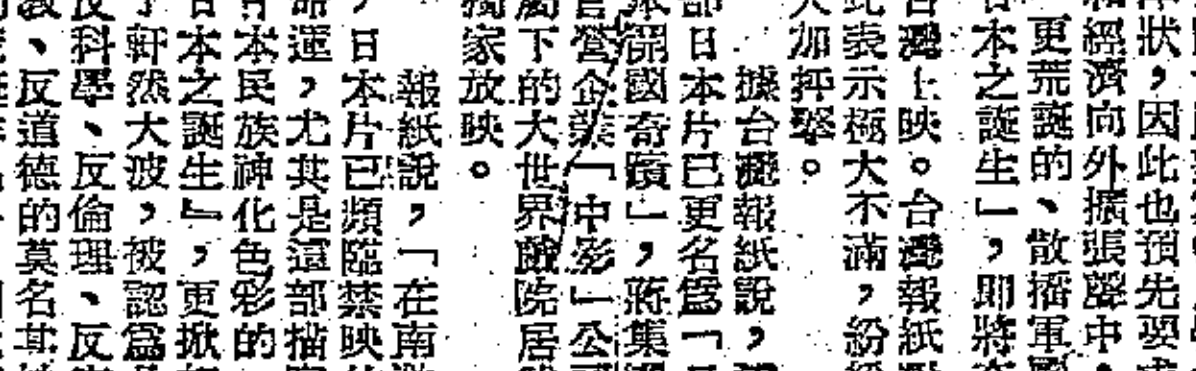 狀，因此也預先要
經濟向外擴張聲中
更荒誕的、散播軍
本之誕生」，即將
台灣上映。台灣報紙
此表示極大不滿，紛
加抨擊。
據台灣報紙說，
部日本片已更名為「
開國奇蹟」，蔣集
營企業「中影」公
屬下的大世界戲院居
家放映。
報紙說，「在南
日本片已頻臨禁映
運，尤其是這部描
日本民族神化色彩的
日本之誕生』，更掀
軒然大波，被認為
反科學、反倫理、反
、反道德的莫名其